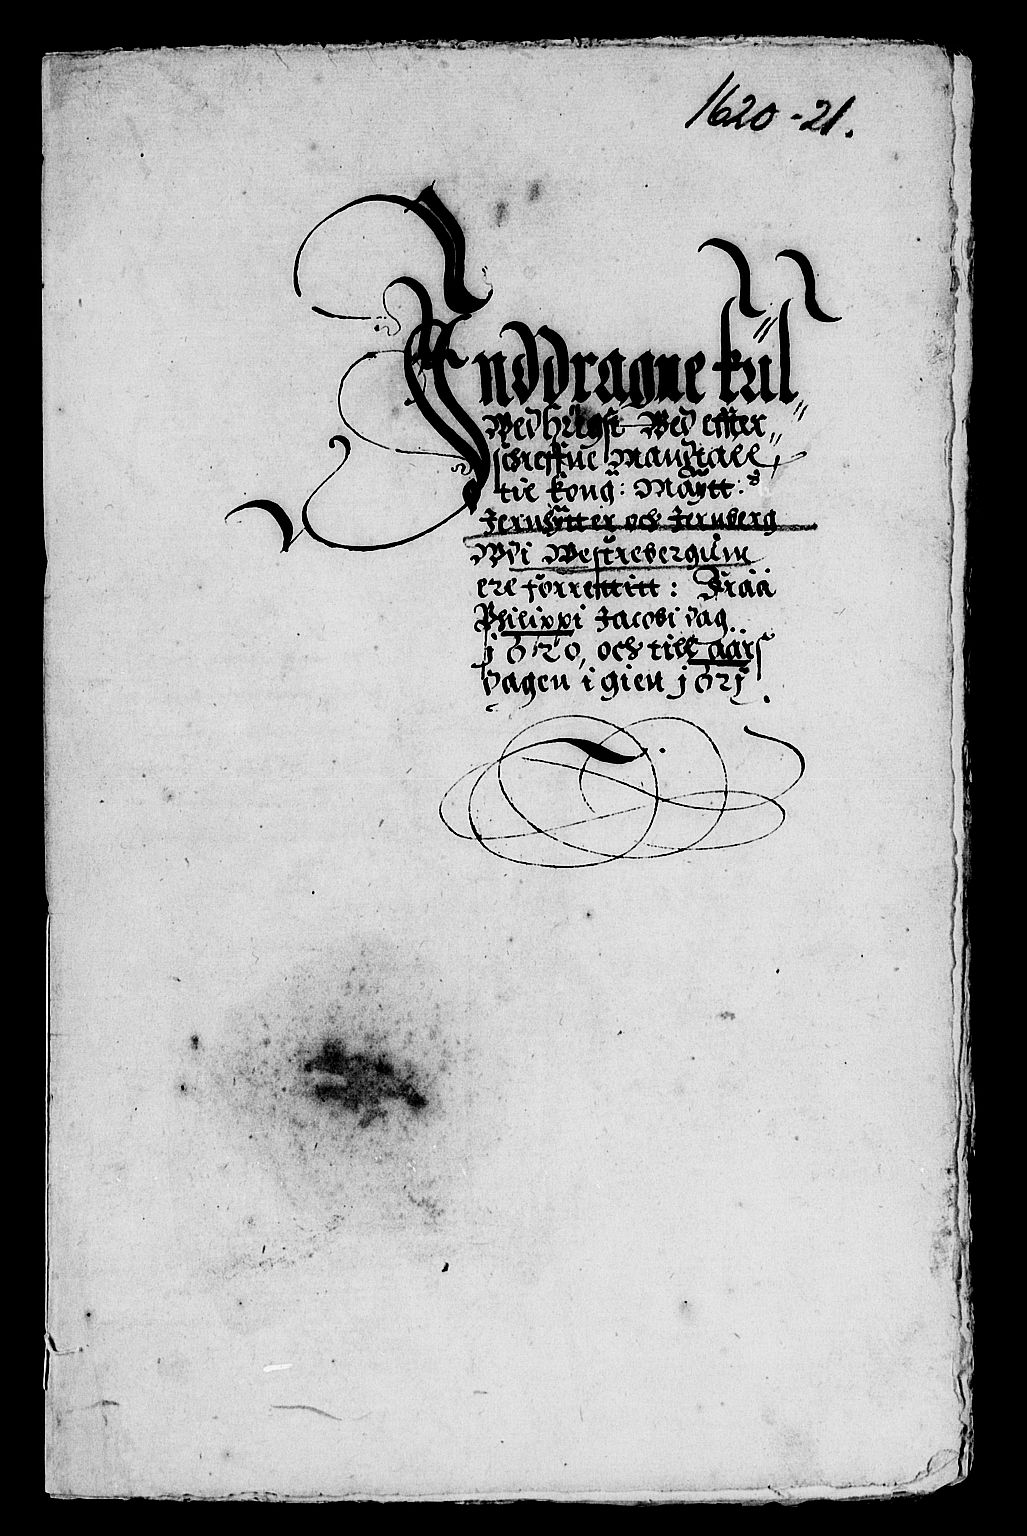 1620-21.
Inddragne kull
Wedhrigst Wed effter
schreffne Mangtall
till kong: Maytt:s
Jernhÿtter och Jernberg
Wdi Westrebergũm
ere förrettitt: Fråå
Philippi Jacobi dag
1620, och till åårs
dagen i gien 1621.